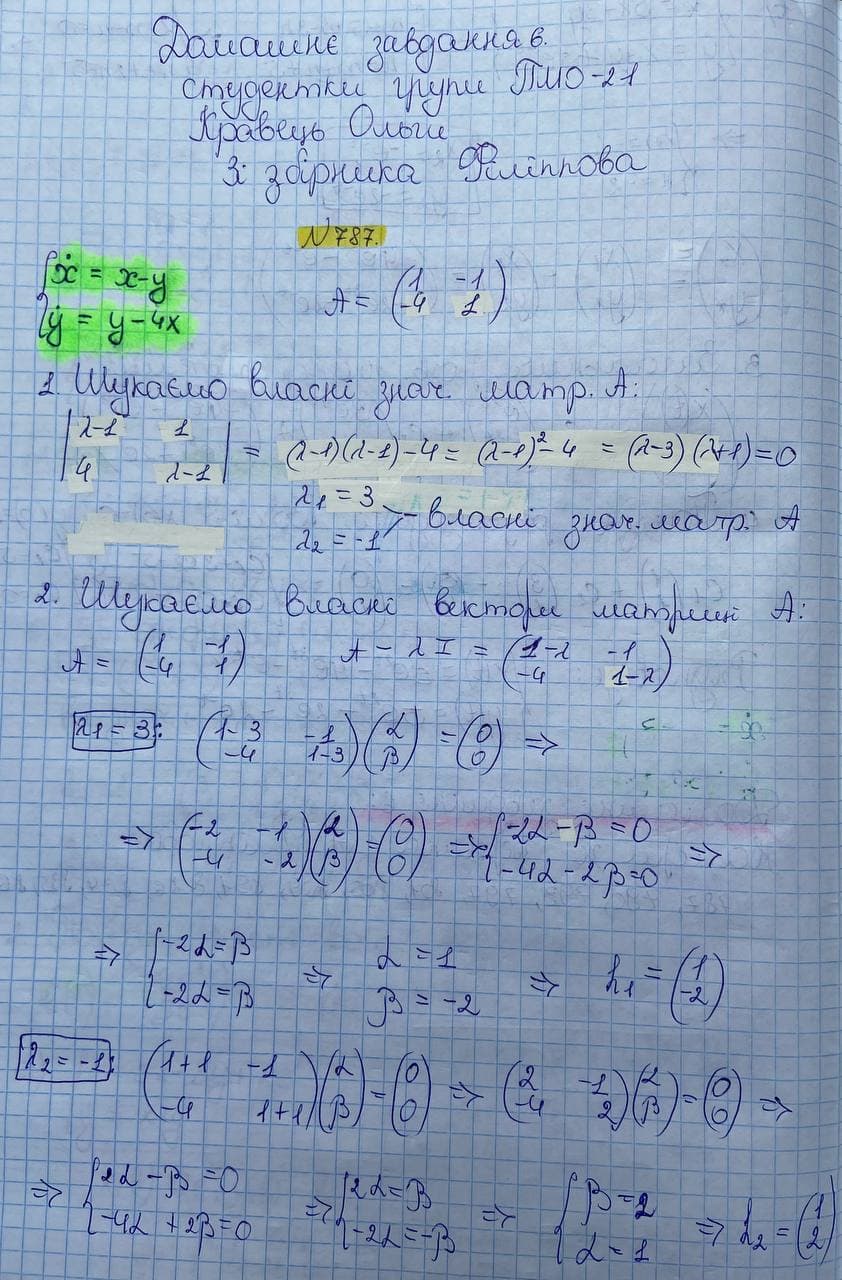 Домашнє завдання 6.
студентки групи ПМО-21
Кравець Ольги
Зі збірника Філіппова
№787.
{ẋ = x-y
{ẏ = y-4x
A = (1 -1
-4 1)
1. Шукаємо власні знач. матр. A:
|λ-1 1
4 λ-1| = (λ-1)(λ-1)-4 = (λ-1)²-4 = (λ-3)(λ+1)=0
λ₁ = 3
λ₂ = -1
- власні знач. матр. A
2. Шукаємо власні вектори матриці A:
A = (1 -1
-4 1)
A - λI = (1-λ -1
-4 1-λ)
λ₁ = 3: (1-3 -1
-4 1-3)(α
β) = (0
0) ⇒
⇒ (-2 -1
-4 -2)(α
β) = (0
0) ⇒ {-2α - β = 0
{-4α - 2β = 0 ⇒
⇒ {-2α = β
{-2α = β ⇒ α = 1
β = -2 ⇒ h₁ = (1
-2)
λ₂ = -1: (1+1 -1
-4 1+1)(α
β) = (0
0) ⇒ (2 -1
-4 2)(α
β) = (0
0) ⇒
⇒ {2α - β = 0
{-4α + 2β = 0 ⇒ {2α = β
{-2α = -β ⇒ {β = 2
{α = 1 ⇒ h₂ = (1
2)